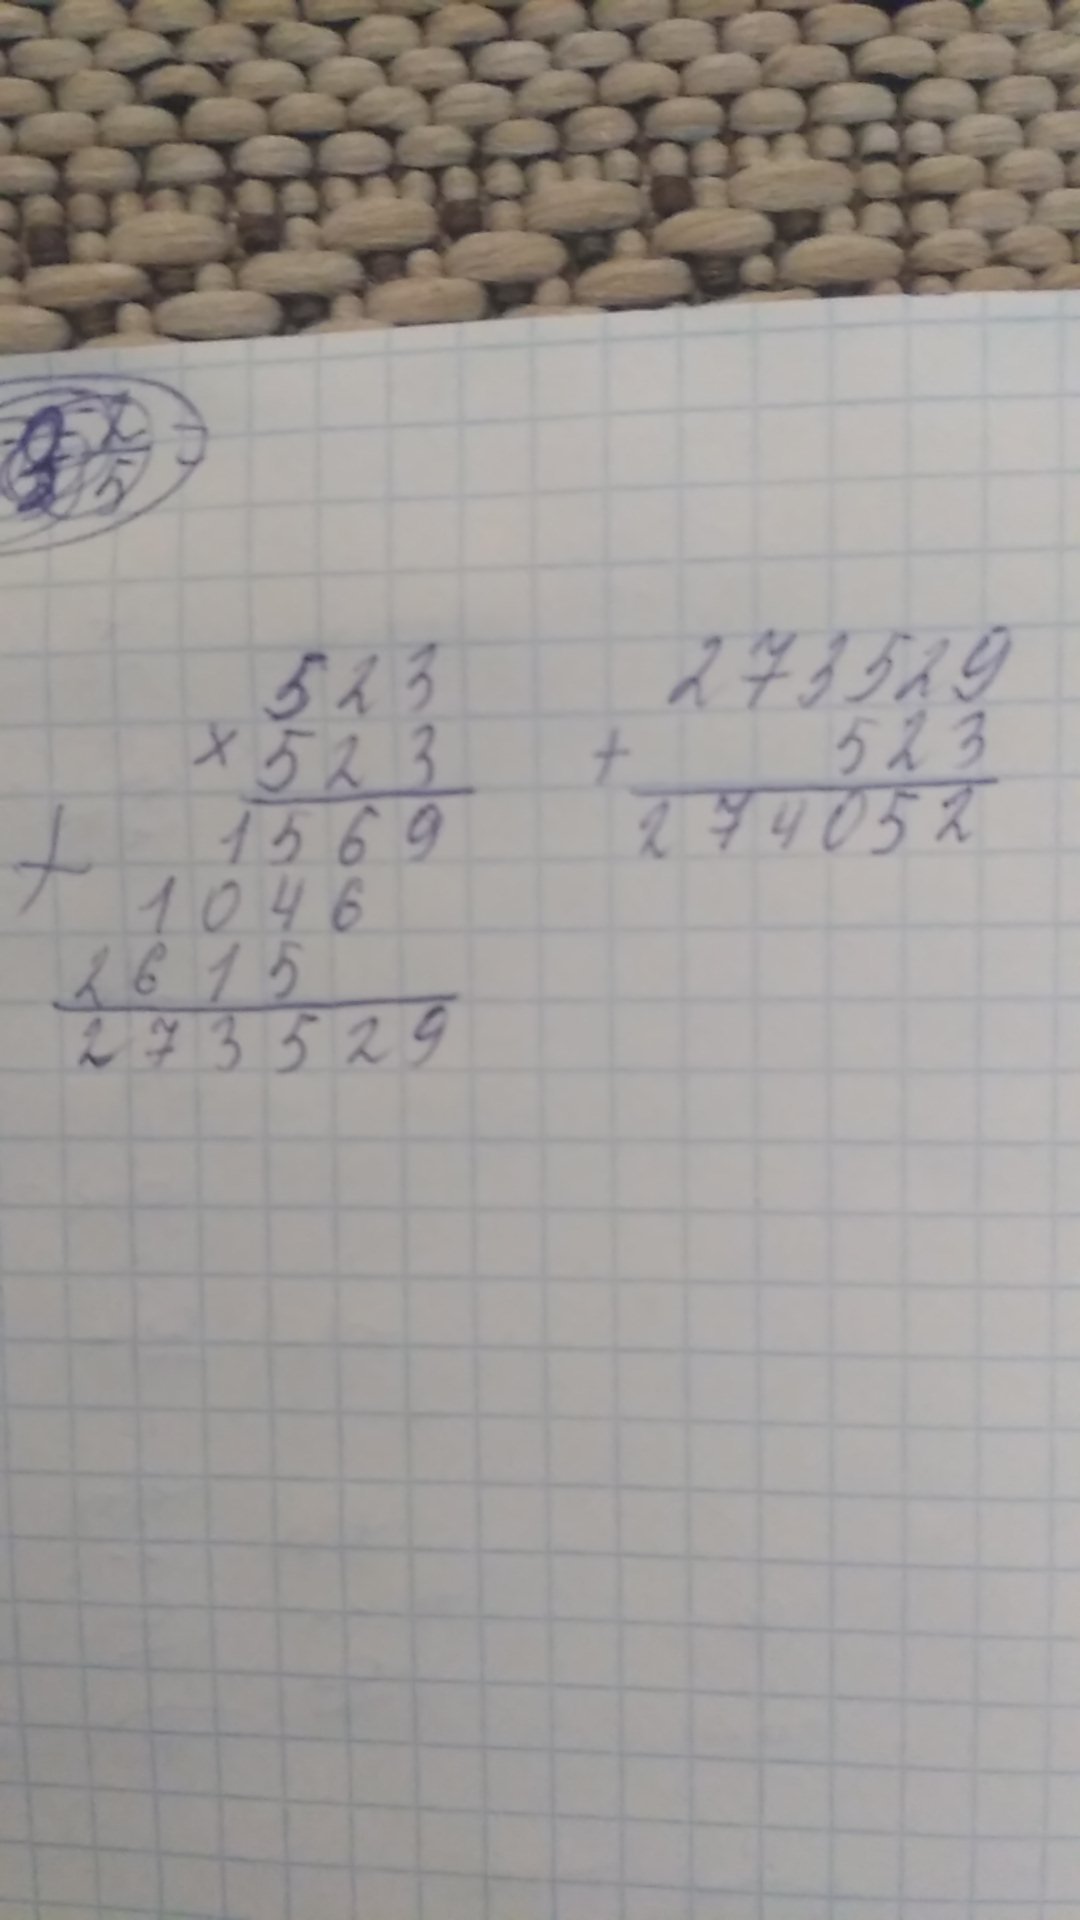 523
× 523
1569
+
1046
2615
273529
273529
+ 523
274052